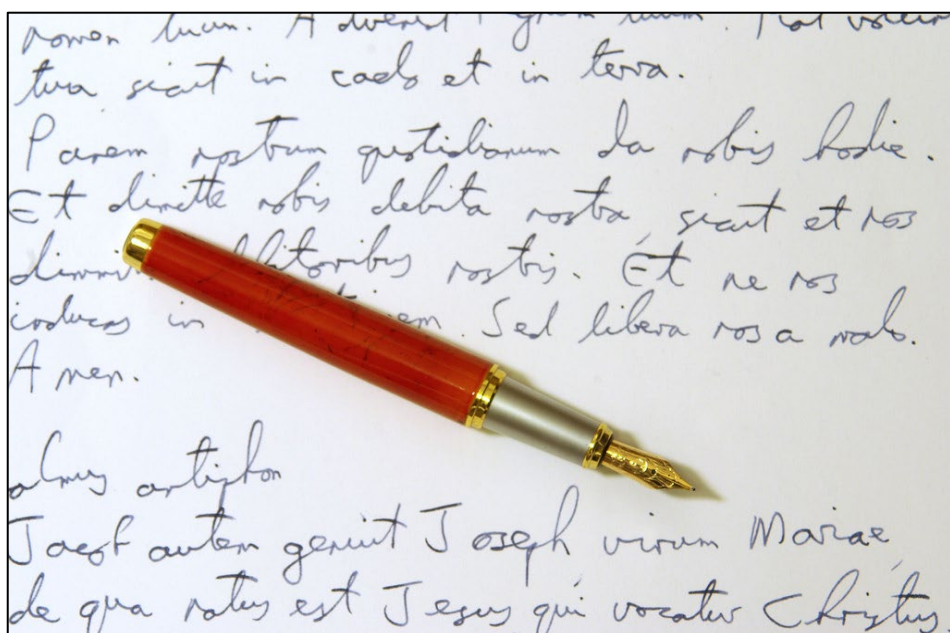 nomen tuum. Adveniat regnum tuum. Fiat volun
tua sicut in caelo et in terra.
Panem nostrum quotidianum da nobis hodie.
Et dimitte nobis debita nostra, sicut et nos
dimmi debitoribus nostris. Et ne nos
inducas in em. Sed libera nos a malo.
Amen.
almus antiphon
Jacob autem genuit Joseph, virum Mariae,
de qua natus est Jesus qui vocatur Christus.